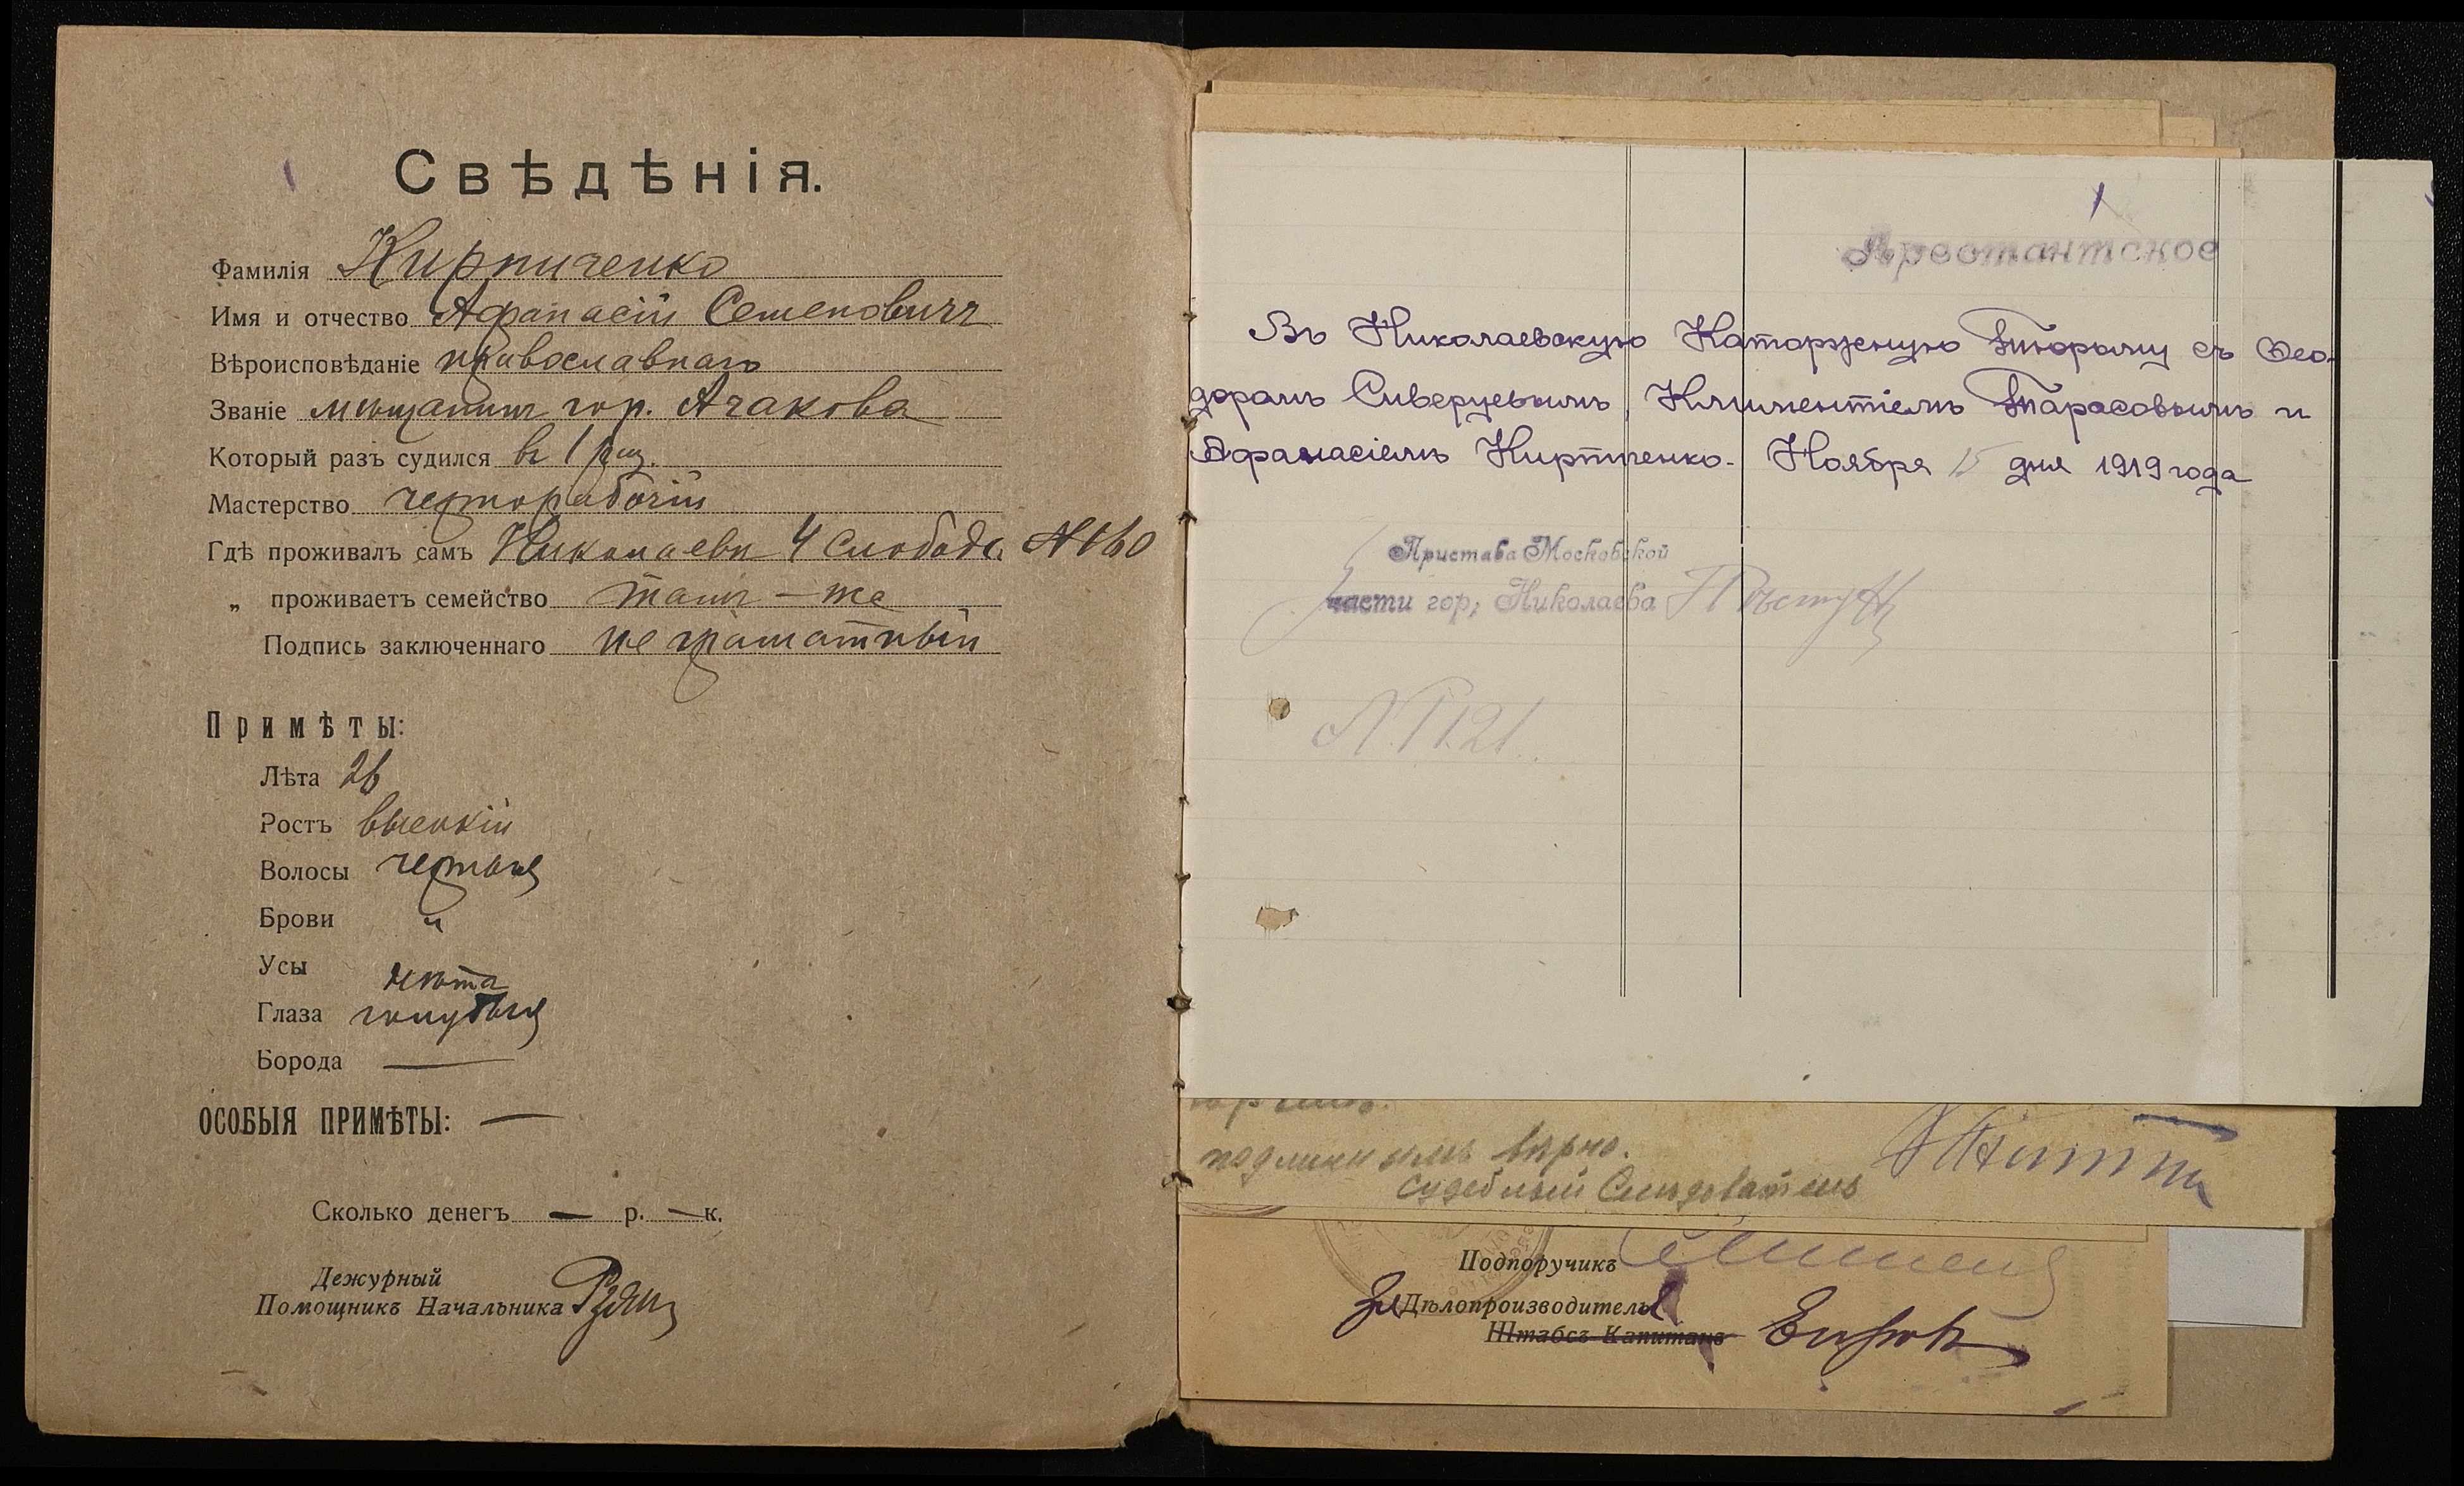 Свѣдѣнія.
Фамилія Кирпиченко
Имя и отчество Афанасій Семеновичъ
Вѣроисповѣданіе православнаго
Званіе мѣщанинъ гор. Ачакова
Который разъ судился въ 1 раз.
Мастерство чернорабочій
Гдѣ проживалъ самъ Николаевъ 4 Слободс. № 160
„ проживаетъ семейство тамъ-же
Подпись заключеннаго не граматный
Примѣты:
Лѣта 26
Ростъ высокій
Волосы черные
Брови "
Усы нѣта
Глаза голубыя
Борода —
ОСОБЫЯ ПРИМѢТЫ: —
Сколько денегъ — р. — к.
Дежурный
Помощникъ Начальника
Арестантское
Въ Николаевскую Каторжную Тюрьму съ Фео-
доромъ Сиверцевымъ, Климентіемъ Тарасовымъ и
Афанасіемъ Кирпиченко. Ноября 15 дня 1919 года
Пристава Московской
части гор, Николаева
N. 1121.
подлиннымъ вѣрно.
Судебный Слѣдователь
Подпоручикъ
За Дѣлопроизводителя
Штабсъ-Капитанъ